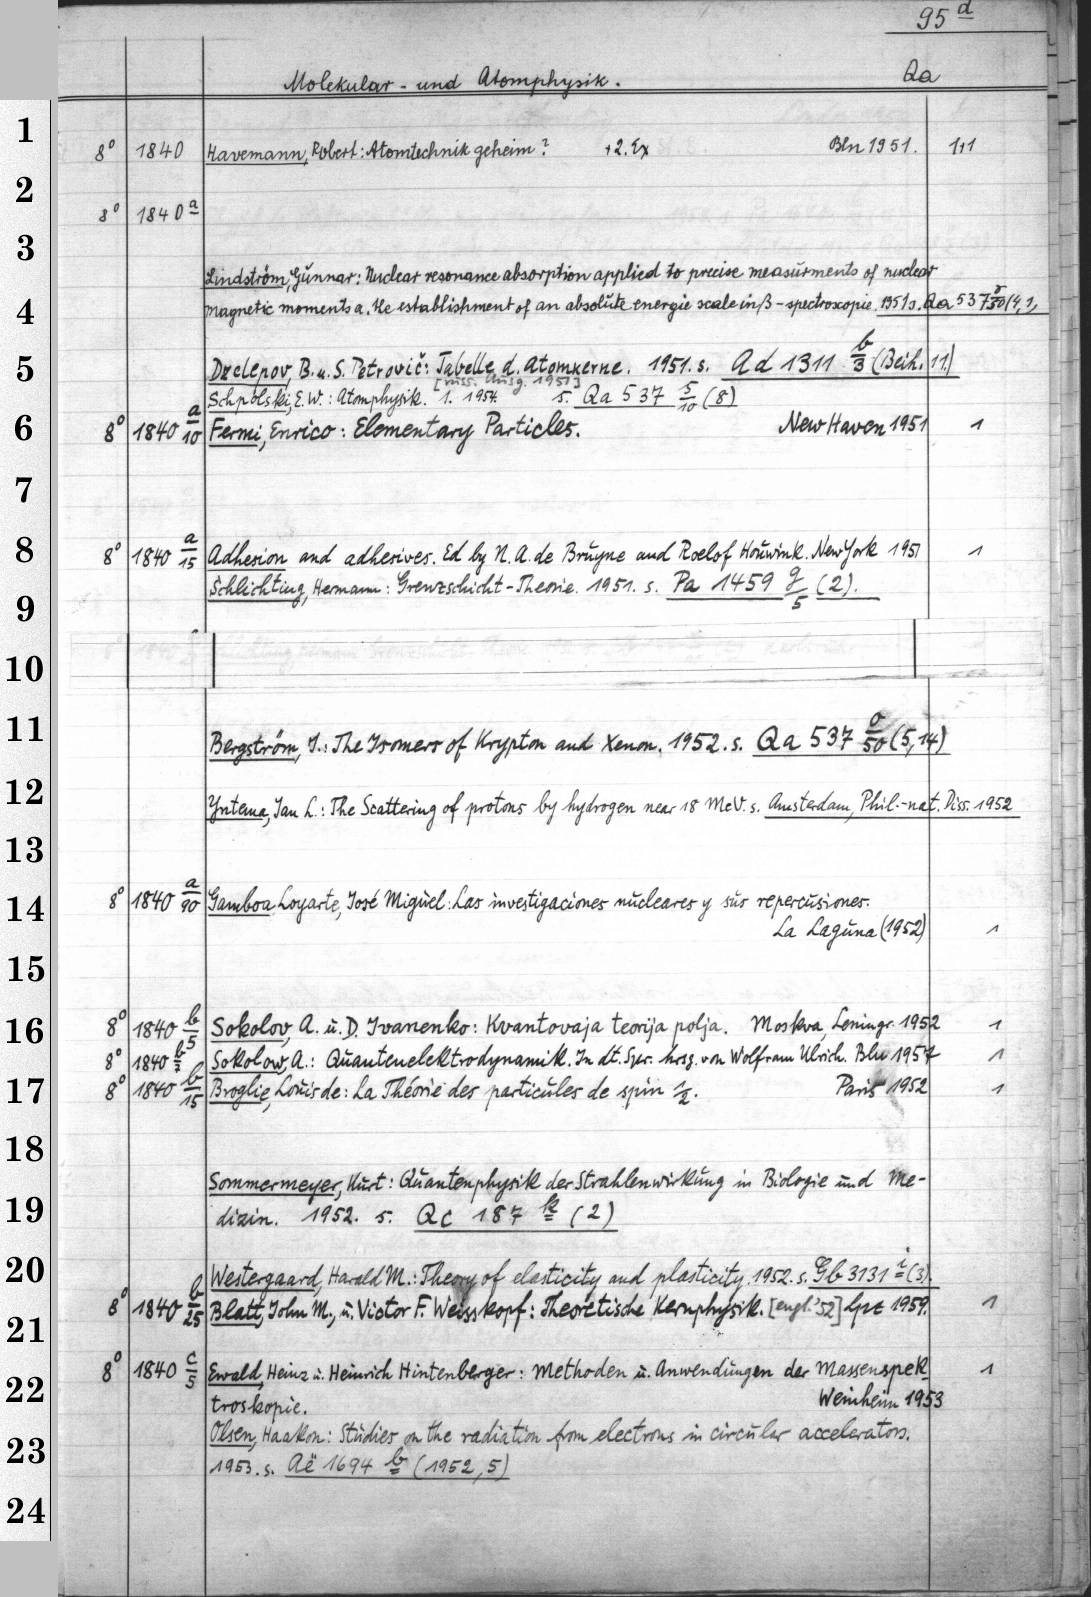 95 d
Molekular- und Atomphysik. Qa
1
8° 1840 Havemann, Robert: Atomtechnik geheim? +2. Ex Bln 1951. 1+1
2
8° 1840 a
3
Lindström, Gunnar: Nuclear resonance absorption applied to precise measurments of nuclear
4
magnetic moments a. the establishment of an absolute energie scale in β-spectroscopie. 1951 s. Qa 537 o/50 (4,1)
5
Dzelepov, B. u. S. Petrovič: Tabelle d. Atomkerne. 1951. s. Ad 1311 b/3 (Beih. 11)
[russ. Ausg. 1951]
Schpolski, E. W.: Atomphysik. 1. 1954. s. Qa 537 s/10 (8)
6
8° 1840 a/10 Fermi, Enrico: Elementary Particles. New Haven 1951 1
7
8
8° 1840 a/15 Adhesion and adhesives. Ed by N. A. de Bruyne and Roelof Houwink. New York 1951 1
Schlichting, Hermann: Grenzschicht-Theorie. 1951. s. Pa 1459 g/5 (2).
9
10
11
Bergström, I.: The Isomers of Krypton and Xenon. 1952. s. Qa 537 o/50 (5,14)
12
Yntema, Jan L.: The Scattering of protons by hydrogen near 18 MeV. s. Amsterdam, Phil.-nat. Diss. 1952
13
14
8° 1840 a/90 Gamboa Loyarte, José Miguel: Las investigaciones nucleares y sus repercusiones.
La Laguna (1952) 1
15
16
8° 1840 b/5 Sokolov, A. u. D. Ivanenko: Kvantovaja teorija polja. Moskva, Leningr. 1952 1
8° 1840 b5 Sokolow, A.: Quantenelektrodynamik. In dt. Spr. hrsg. von Wolfram Ulrich. Bln 1957 1
17
8° 1840 b/15 Broglie, Louis de: La Théorie des particules de spin 1/2. Paris 1952 1
18
Sommermeyer, Kurt: Quantenphysik der Strahlenwirkung in Biologie und Me-
19
dizin. 1952. s. Qc 187 k (2)
20
Westergaard, Harald M.: Theory of elasticity and plasticity. 1952. s. Gb 3131 i (3).
8° 1840 b/25 Blatt, John M., u. Victor F. Weisskopf: Theoretische Kernphysik. [engl. '52] Lpz 1959. 1
21
8° 1840 c/5 Ewald, Heinz u. Heinrich Hintenberger: Methoden u. Anwendungen der Massenspek 1
22
troskopie. Weinheim 1953
Olsen, Haakon: Studies on the radiation from electrons in circular accelerators.
23
1953. s. Aë 1694 b (1952, 5)
24